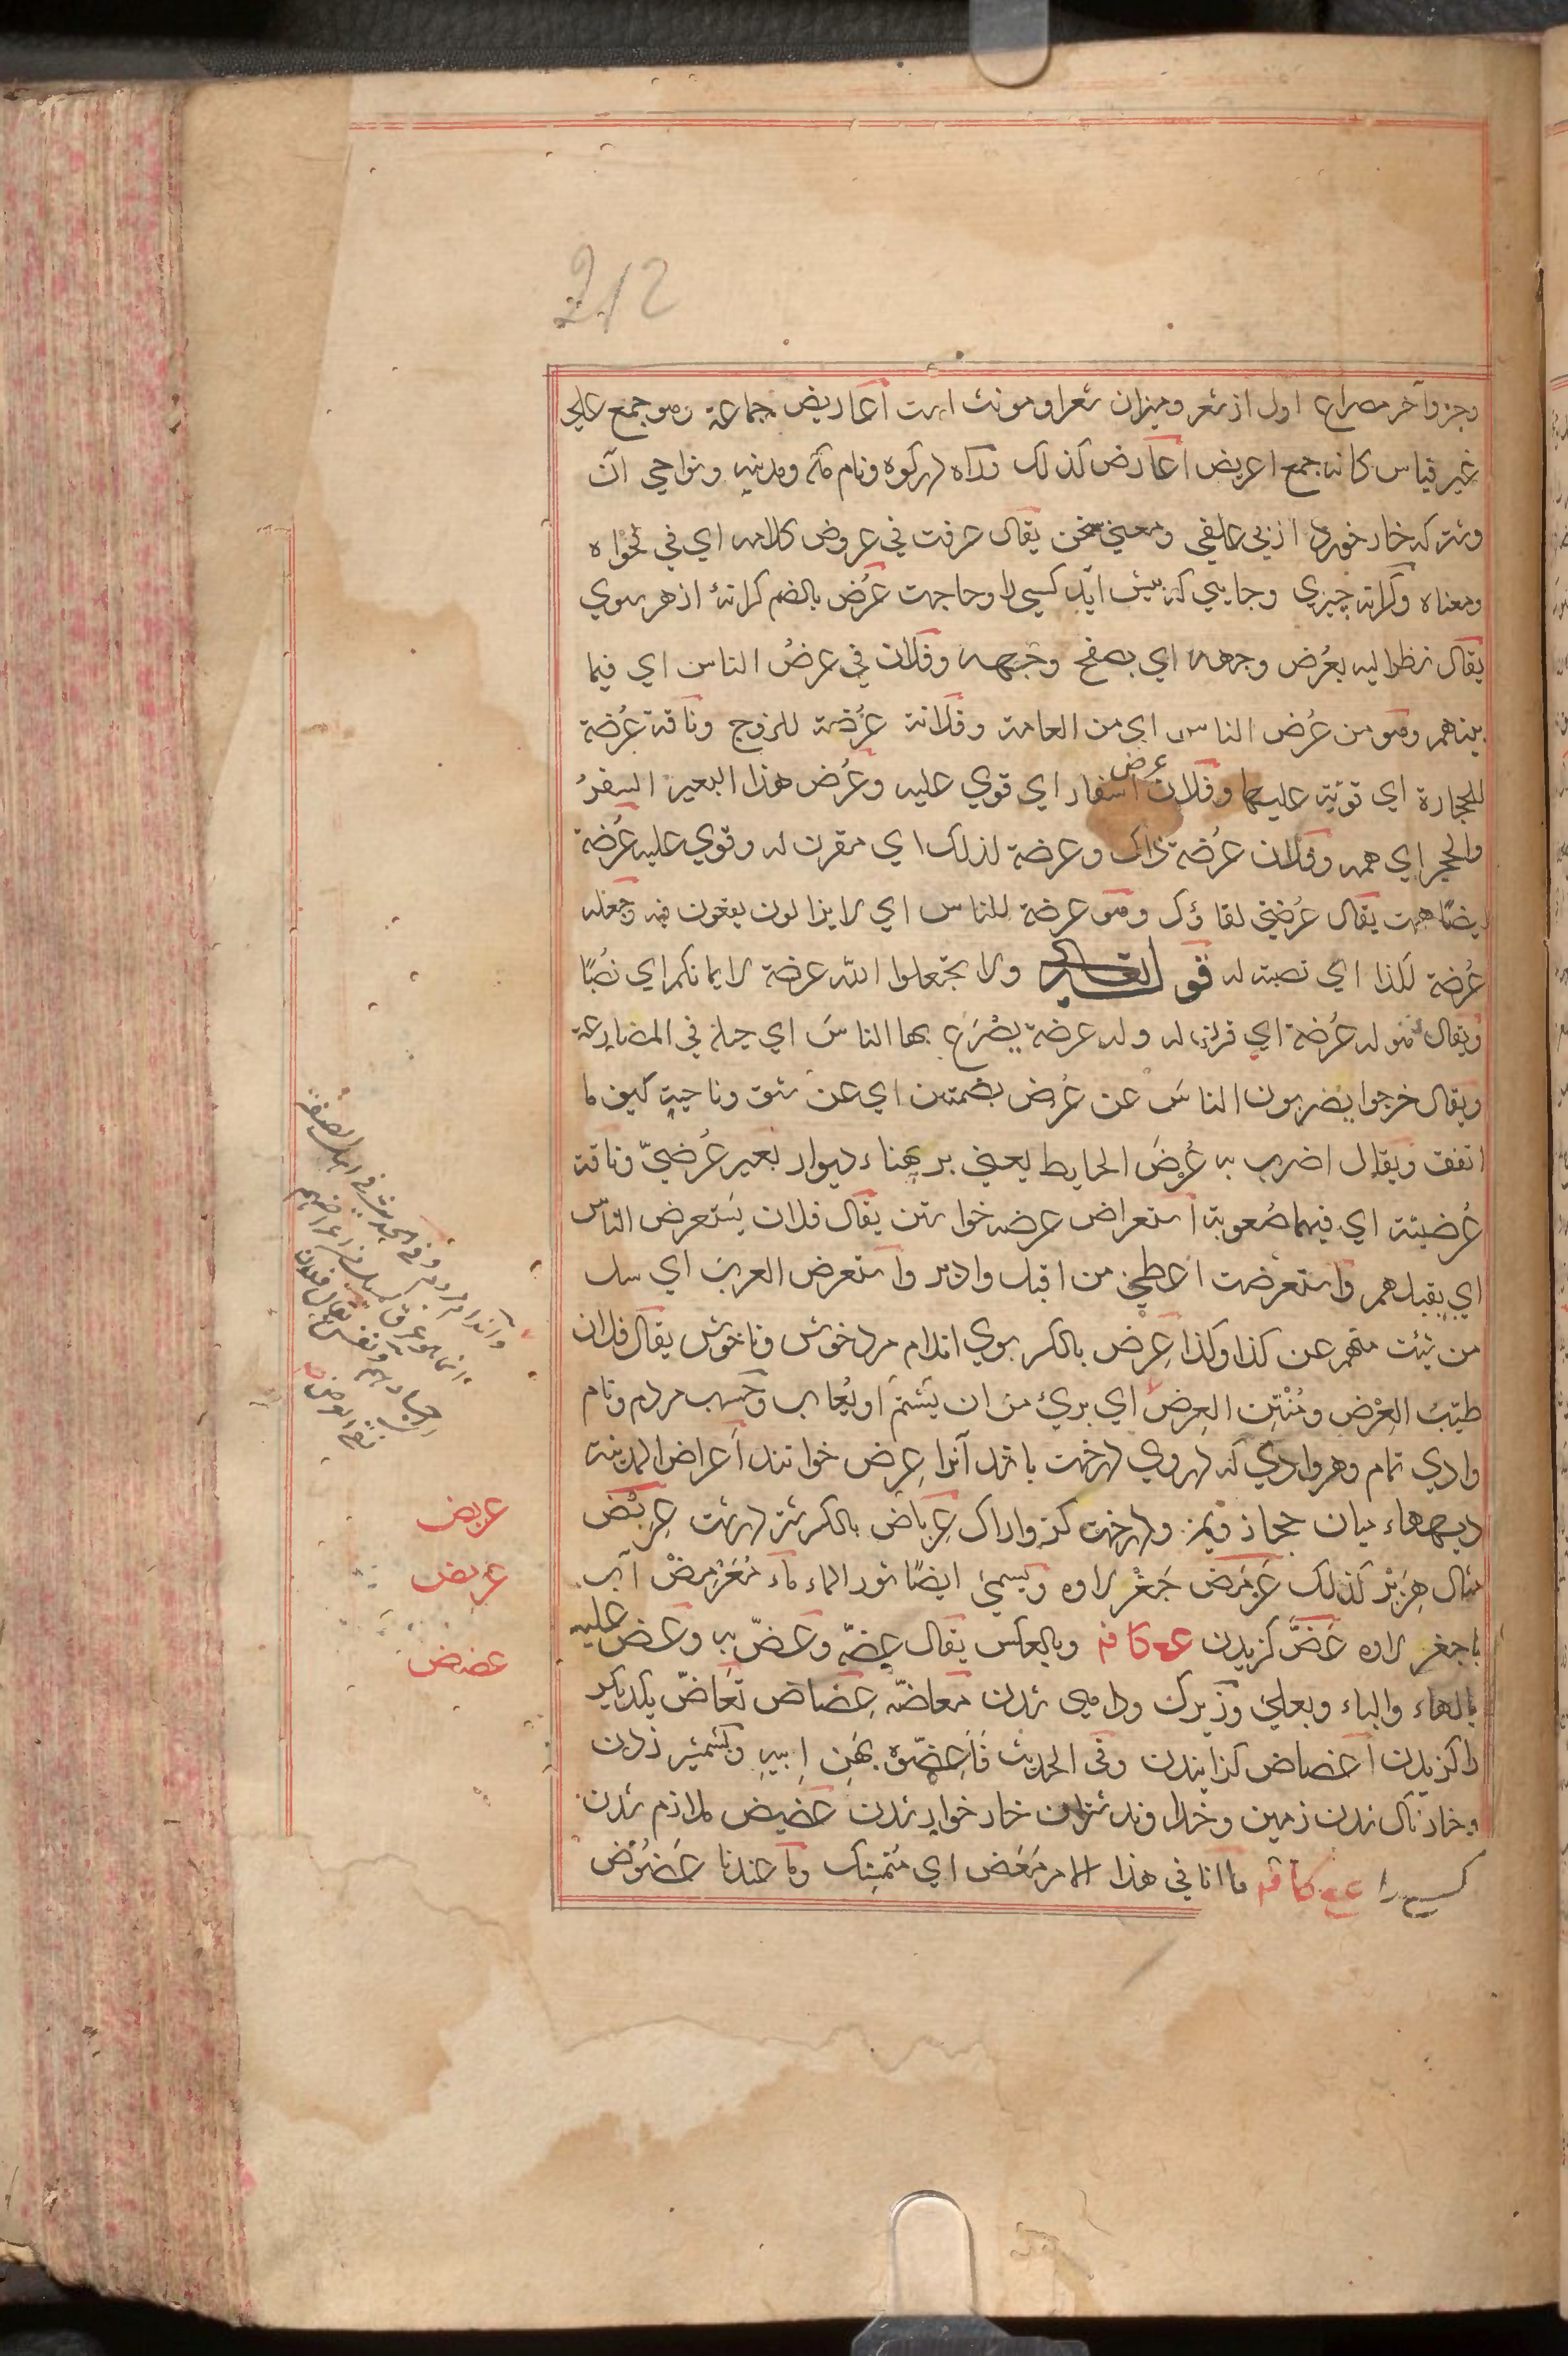 212
وجزو آخر مصراع اول از شعر و میزان شعر او مونث است اعاریض جماعة وهو جمع علی
غیر قیاس کانه جمع اعریض اعارض کذلک وراه در کوه ونام مکه ومدینه ونواحی آن
وشتر که خار خورد از بی علفی ومعنی سخن یقال عرفت فی عروض کلامه ای فی فحواه
ومعناه وکرانه چیزی وجایی که پیش آید کسی را وحاجت عُرُض بالضم کرانهٔ از هر سوی
یقال نظر الیه بعُرض وجهه ای بصفح وجهه وفلان فی عرضُ الناس ای فیما
بینهم وهو من عُرض الناس ای من العامة وفلانة عُرُضة للزوج وناقة عُرُضة
للحجارة ای قویّة علیها وفلان عرض اسفار ای قوی علیه وعُرض هذا البعیر السفرُ
والحجر ای همه وفلان عُرُضة ذاک وعرضة لذلک ای مقرن له وقوی علیه عُرُضة
ایضًا همت یقال عُرُضتی لقاؤک وهو عرضة للناس ای لا یزالون یقعون فیه وجعلته
عُرُضة لکذا ای نصبته له قو تعالی ولا تجعلوا الله عرضة لایمانکم ای نصُبًا
ویقال هو له عُرُضة ای قرن له وله عرضة یصْرَع بها الناسَ ای حیلة فی المصارعة
ویقال خرجوا یضربون الناسَ عن عُرُض بضمتین ای عن شق وناحیة کیف ما
اتفق ویقال اضرب به عُرْضَ الحایط یعنی بر پهناء دیوار بعیر عُرضیّ وناقة
عُرضیّة ای فیها صُعوبة استعراض عرضه خواستن یقال فلان یَستعرض الناسَ
ای یقبلهم واستعرضت اعطی من اقبل وادبر واستعرض العربَ ای سل
من شئت منهم عن کذا وکذا عِرْض بالکسر بوی اندام مرد خوش وناخوش یقال فلان
طیّبُ العِرْض ومُنْتِن العِرض ای بریُ من ان یُشتمَ او یُعاب وحَسب مردم ونام
وادی تمام وهر وادی که در وی درخت باشد آنرا عِرض خوانند اَعراض المدینة
دیهها میان حجاز ویمن ودرخت کز واراک عِرْباض بالکسر شتر درشت عِرَبْض
مثال هِزَبْر کذلک عَرْمَض جَغْر لاوه ویسمی ایضًا ثور الماء ماء مُعَرْمِضْ آب
با جغر لاوه عَضَّ کزیدن عـ کافه وبالعکس یقال عضّه وعَضَّ به وعَضَّ علیه
بالهاء والباء وبعلی وزیرک وداهی شدن مَعاضّة عِضاض تَعَاضّ یکدیکر
را کزیدن اعضاض کزانیدن وفی الحدیث فَاَعِضّوه بِهَن ابیه وبشمشیر زدن
وخارناک شدن زمین وخداوند شتران خار خوار شدن عضیض ملازم شدن
کسی را عـ کافه ما انا فی هذا الامر مَعَض ای مُتمسّک وما عندنا عَضُوض
عربض
عرمض
عضض